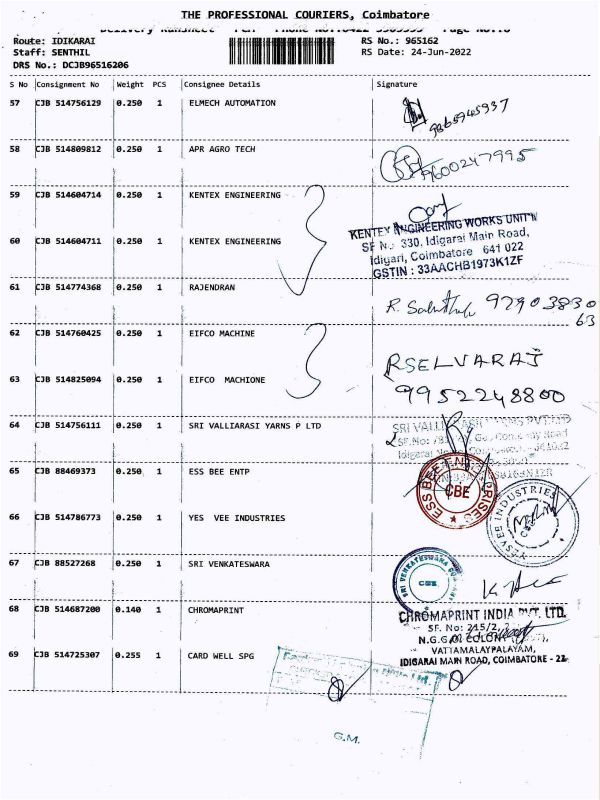 THE PROFESSIONAL COURIERS, Coimbatore
Route: IDIKARAI RS No.: 965162
Staff: SENTHIL RS Date: 24-Jun-2022
DRS No.: DCJB96516206
S No Consignment No Weight PCS Consignee Details Signature
57 CJB 514756129 0.250 1 ELMECH AUTOMATION
9865945937
58 CJB 514809812 0.250 1 APR AGRO TECH
9600247995
59 CJB 514604714 0.250 1 KENTEX ENGINEERING
KENTEX ENGINEERING WORKS UNIT
SF No. 330, Idigarai Main Road,
60 CJB 514604711 0.250 1 KENTEX ENGINEERING
Idigari, Coimbatore 641 022
GSTIN : 33AACHB1973K1ZF
61 CJB 514774368 0.250 1 RAJENDRAN
R. 9790383063
62 CJB 514760425 0.250 1 EIFCO MACHINE
RSELVARAJ
63 CJB 514825094 0.250 1 EIFCO MACHIONE
9952248800
64 CJB 514756111 0.250 1 SRI VALLIARASI YARNS P LTD
65 CJB 88469373 0.250 1 ESS BEE ENTP
ESS BEE ENTERPRISES
CBE
66 CJB 514786773 0.250 1 YES VEE INDUSTRIES
YESVEE INDUSTRIES
67 CJB 88527268 0.250 1 SRI VENKATESWARA
SRI VENKATESWARA
CBE
68 CJB 514687200 0.140 1 CHROMAPRINT
CHROMAPRINT INDIA PVT. LTD.
SF. No: 215/2,
N.G.G.O COLONY
VATTAMALAYPALAYAM,
IDIGARAI MAIN ROAD, COIMBATORE - 22.
69 CJB 514725307 0.255 1 CARD WELL SPG
G.M.